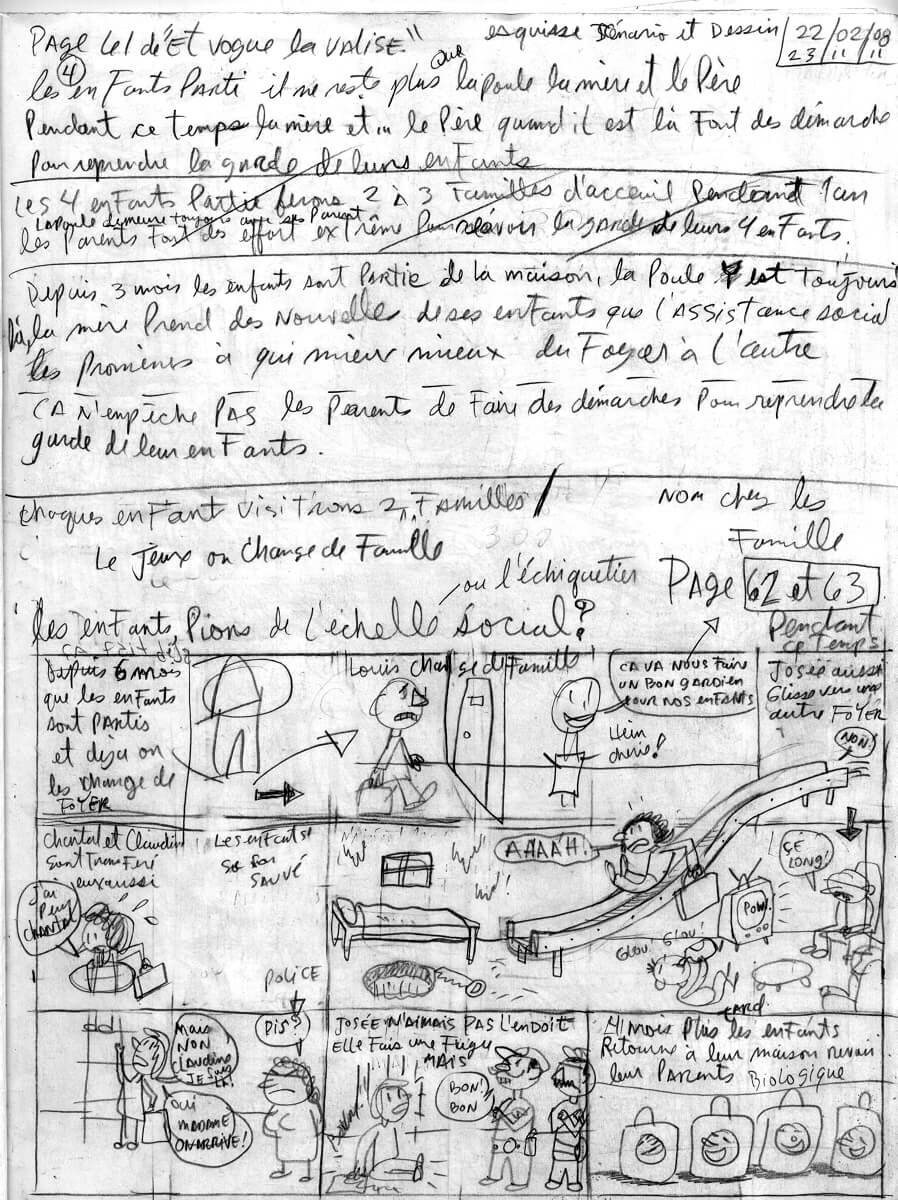 PAGE 61 de "Et vogue la valise." esquisse scénario et Dessin 22/02/08
23/11/11
les 4 enfants parti il ne reste plus que la poule la mère et le Père
Pendant ce temps la mère et le Père quand il est là font des démarche
Pour reprendre la garde de leurs enfants
Les 4 enfants Partie ferons 2 à 3 Familles d'acceuil pendant 1 an
La poule demeure toujours avec ses Parent
les Parents font des effort extrême pour ravoir la garde de leurs 4 enfants.
Depuis 3 mois les enfants sont Partie de la maison, la Poule est toujours
là, la mère Prend des Nouvelles de ses enfants que l'Assistance social
les Promènes à qui mieux mieux du Foyer à l'autre
ÇA N'empêche PAS les Parents de Faire des démarches Pour reprendre la
garde de leur enfants.
Chaques enfant visitrons 2 Familles
Nom chez les
Famille
Le Jeux on Change de Famille
ou l'échiquetier
PAGE 62 et 63
les enfants, Pions de l'échelle social?
Pendant
ce Temps
Depuis 6 mois
que les enfants
sont Partis
et déja on
les change de
FOYER
Louis change de Famille
ÇA VA NOUS FAIRE
UN BON GARDIEN
POUR NOS ENFANTS
Hein
chérie!
Josée aussi
Glisse vers un
autre FOYER
NON!
Chantal et Claudine
sont Transféré
eux aussi
J'ai
Peur
CHANTAL
Les enfants
SAUVÉ
AHAAH!
POW!
C'E
LONG!
GLOU! GLOU!
POLICE
MAIS
NON
Claudine
JE SUIS
LÀ!
OUI
MADAME
ON ARRIVE!
PIS?
JOSÉE N'AIMAIS PAS L'ENDOIT
ELLE FAIS UNE FUGUE
MAIS
BON!
BON
4 mois Plus tard les enfants
Retourne à leur maison revoir
leur Parents Biologique